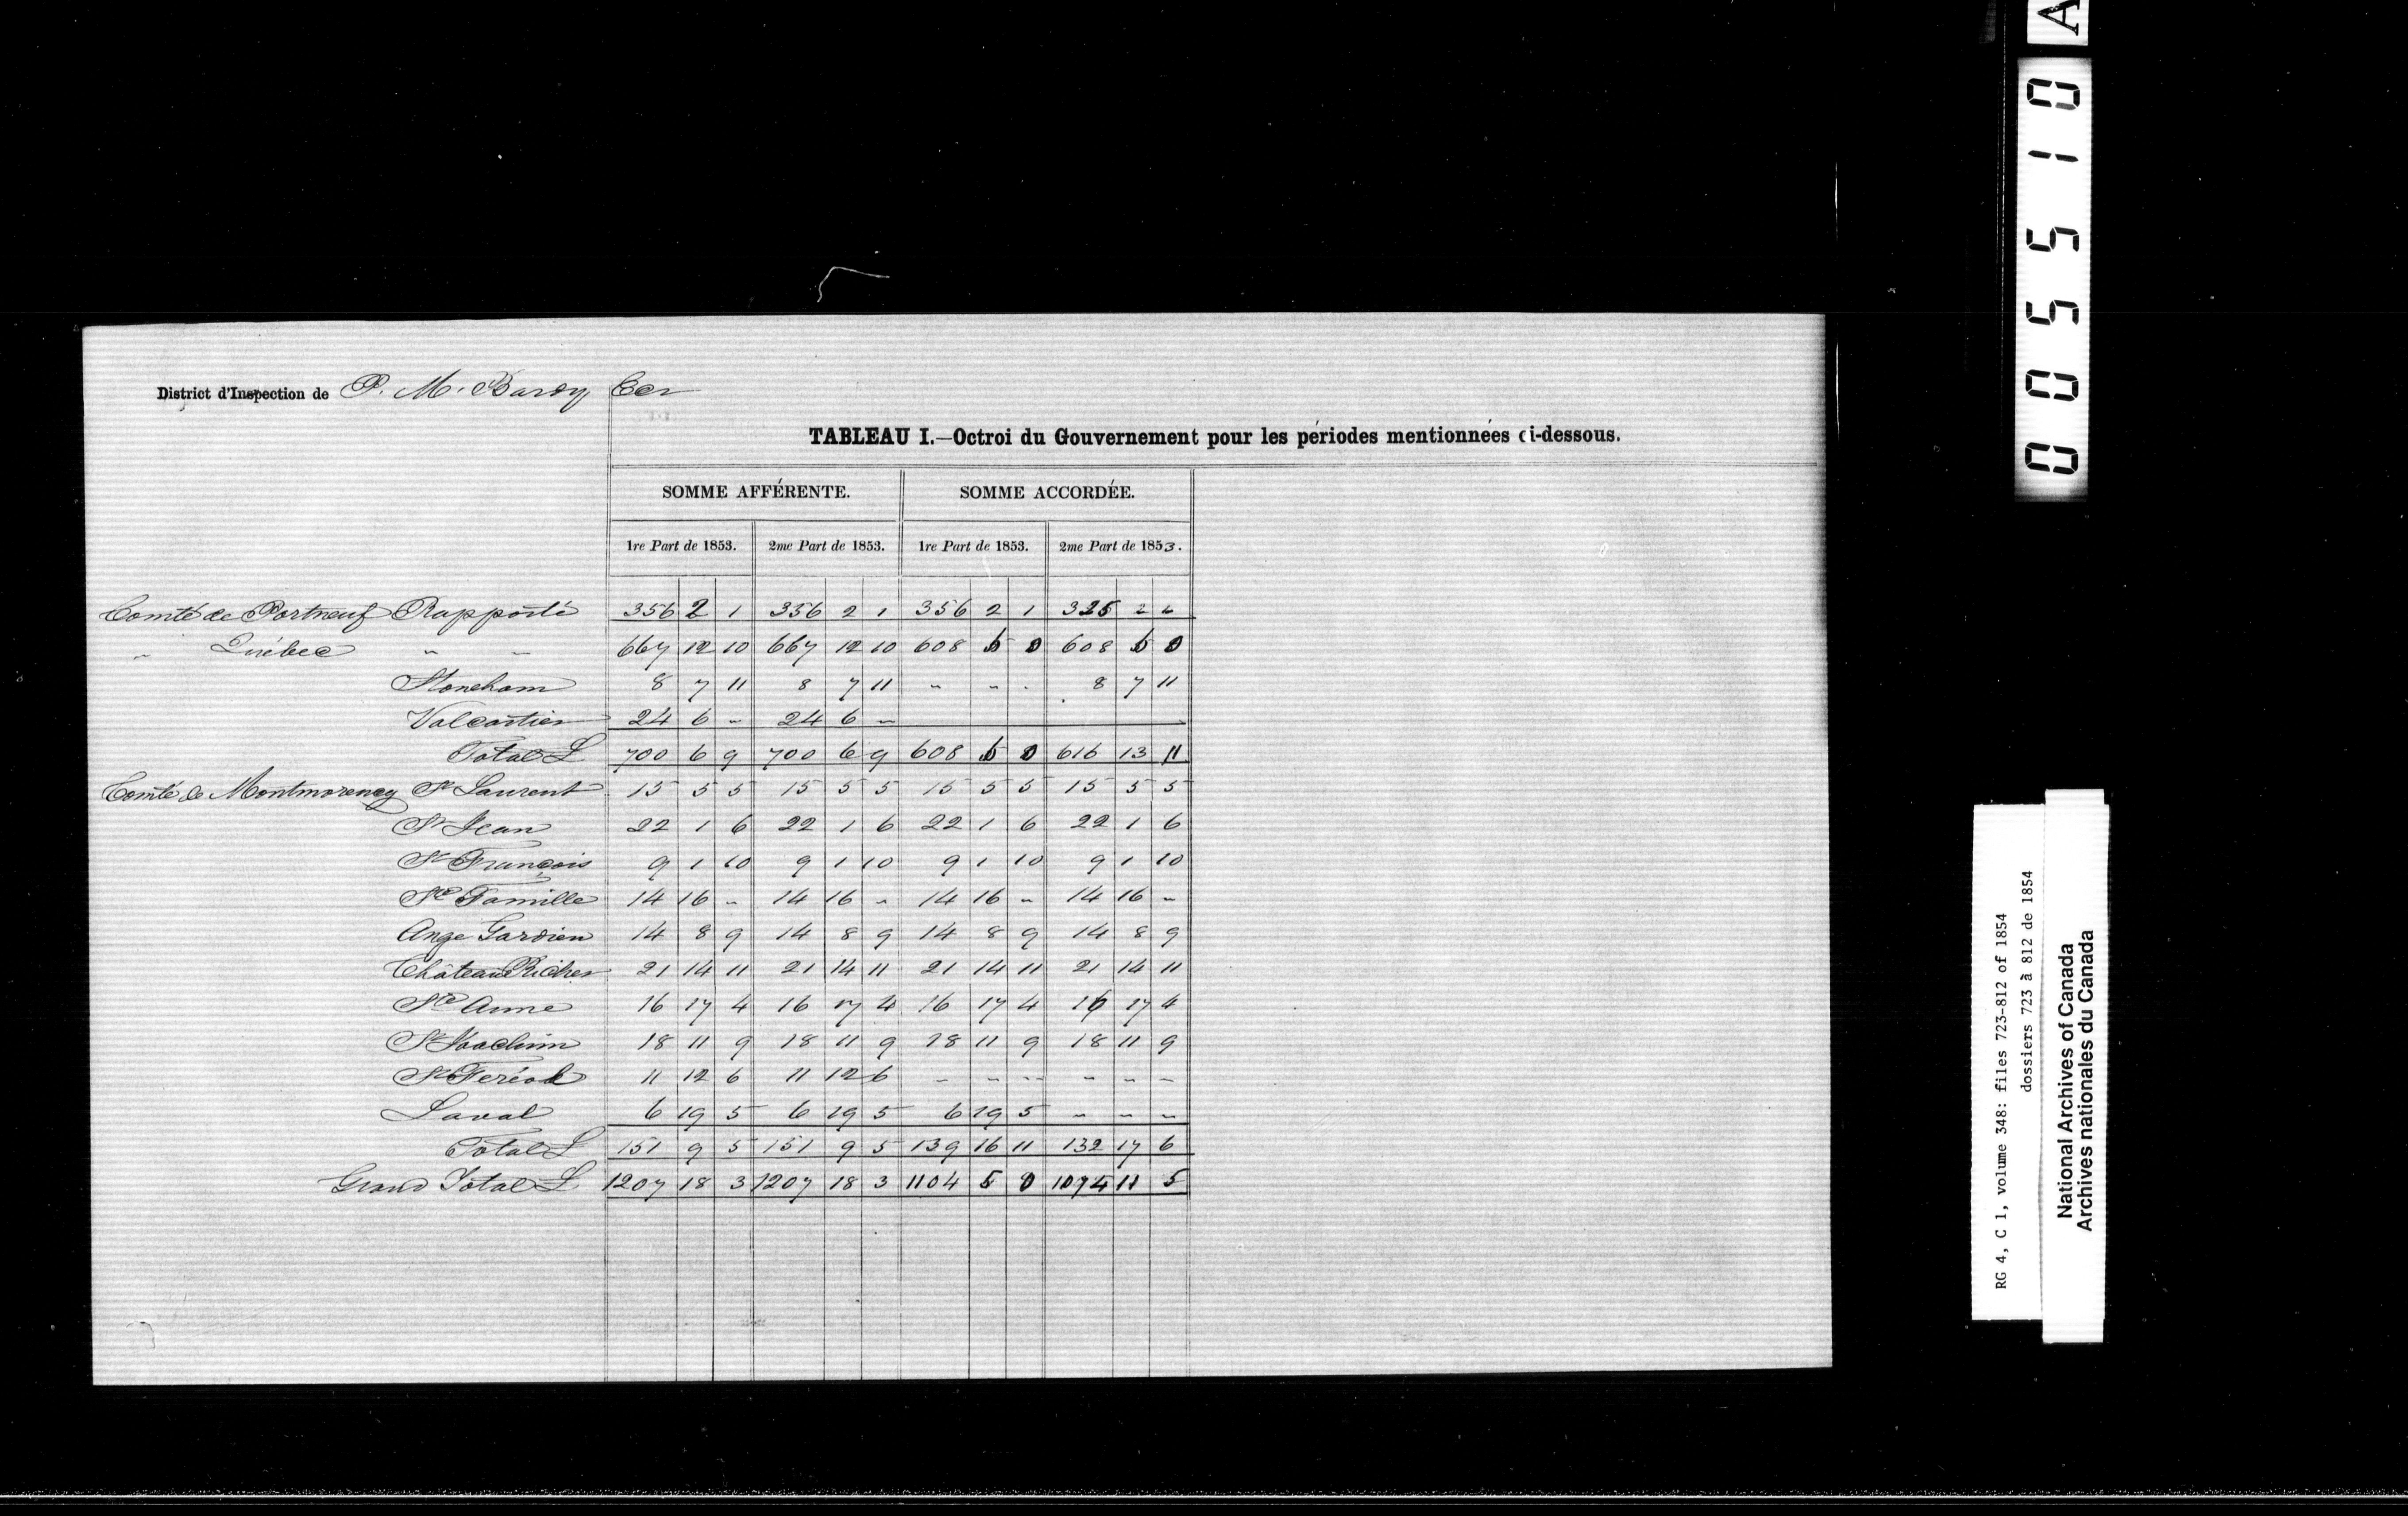 District d'Inspection de P. M. Bardy Ecr
TABLEAU I.—Octroi du Gouvernement pour les périodes mentionnées ci-dessous.
SOMME AFFÉRENTE. SOMME ACCORDÉE.
1re Part de 1853. 2me Part de 1853. 1re Part de 1853. 2me Part de 1853.
Comté de Portneuf Rapporté 356 2 1 356 2 1 356 2 1 325 2
" Québec " " 667 12 10 667 12 10 608 6 0 608 6 0
Stoneham 8 7 11 8 7 11 " " " 8 7 11
Valcartier 24 6 " 24 6 "
Total £ 700 6 9 700 6 9 608 6 0 616 13 11
Comté de Montmorency St Laurent 15 5 5 15 5 5 15 5 5 15 5 5
St Jean 22 1 6 22 1 6 22 1 6 22 1 6
St François 9 1 10 9 1 10 9 1 10 9 1 10
Ste Famille 14 16 " 14 16 " 14 16 " 14 16 "
Ange Gardien 14 8 9 14 8 9 14 8 9 14 8 9
Château Richer 21 14 11 21 14 11 21 14 11 21 14 11
Ste Anne 16 17 4 16 17 4 16 17 4 16 17 4
St Joachim 18 11 9 18 11 9 18 11 9 18 11 9
St Feréol 11 12 6 11 12 6 " " " " " "
Laval 6 19 5 6 19 5 6 19 5 " " "
Total £ 151 9 5 151 9 5 139 16 11 132 17 6
Grand Total £ 1207 18 3 1207 18 3 1104 5 0 1074 11 5
A
005510
RG 4, C 1, volume 348: files 723-812 of 1854
dossiers 723 à 812 de 1854
National Archives of Canada
Archives nationales du Canada